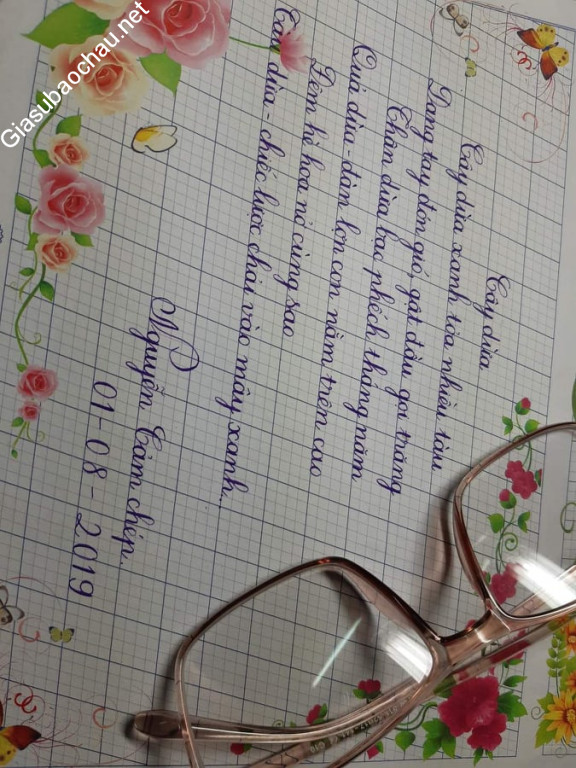 Giasubaochau.net
Cây dừa
Cây dừa xanh tỏa nhiều tàu
Dang tay đón gió, gật đầu gọi trăng
Thân dừa bạc phếch tháng năm
Quả dừa - đàn lợn con nằm trên cao
Đêm hè hoa nở cùng sao
Tàu dừa - chiếc lược chải vào mây xanh...
Nguyễn Cầm chép.
01-08-2019